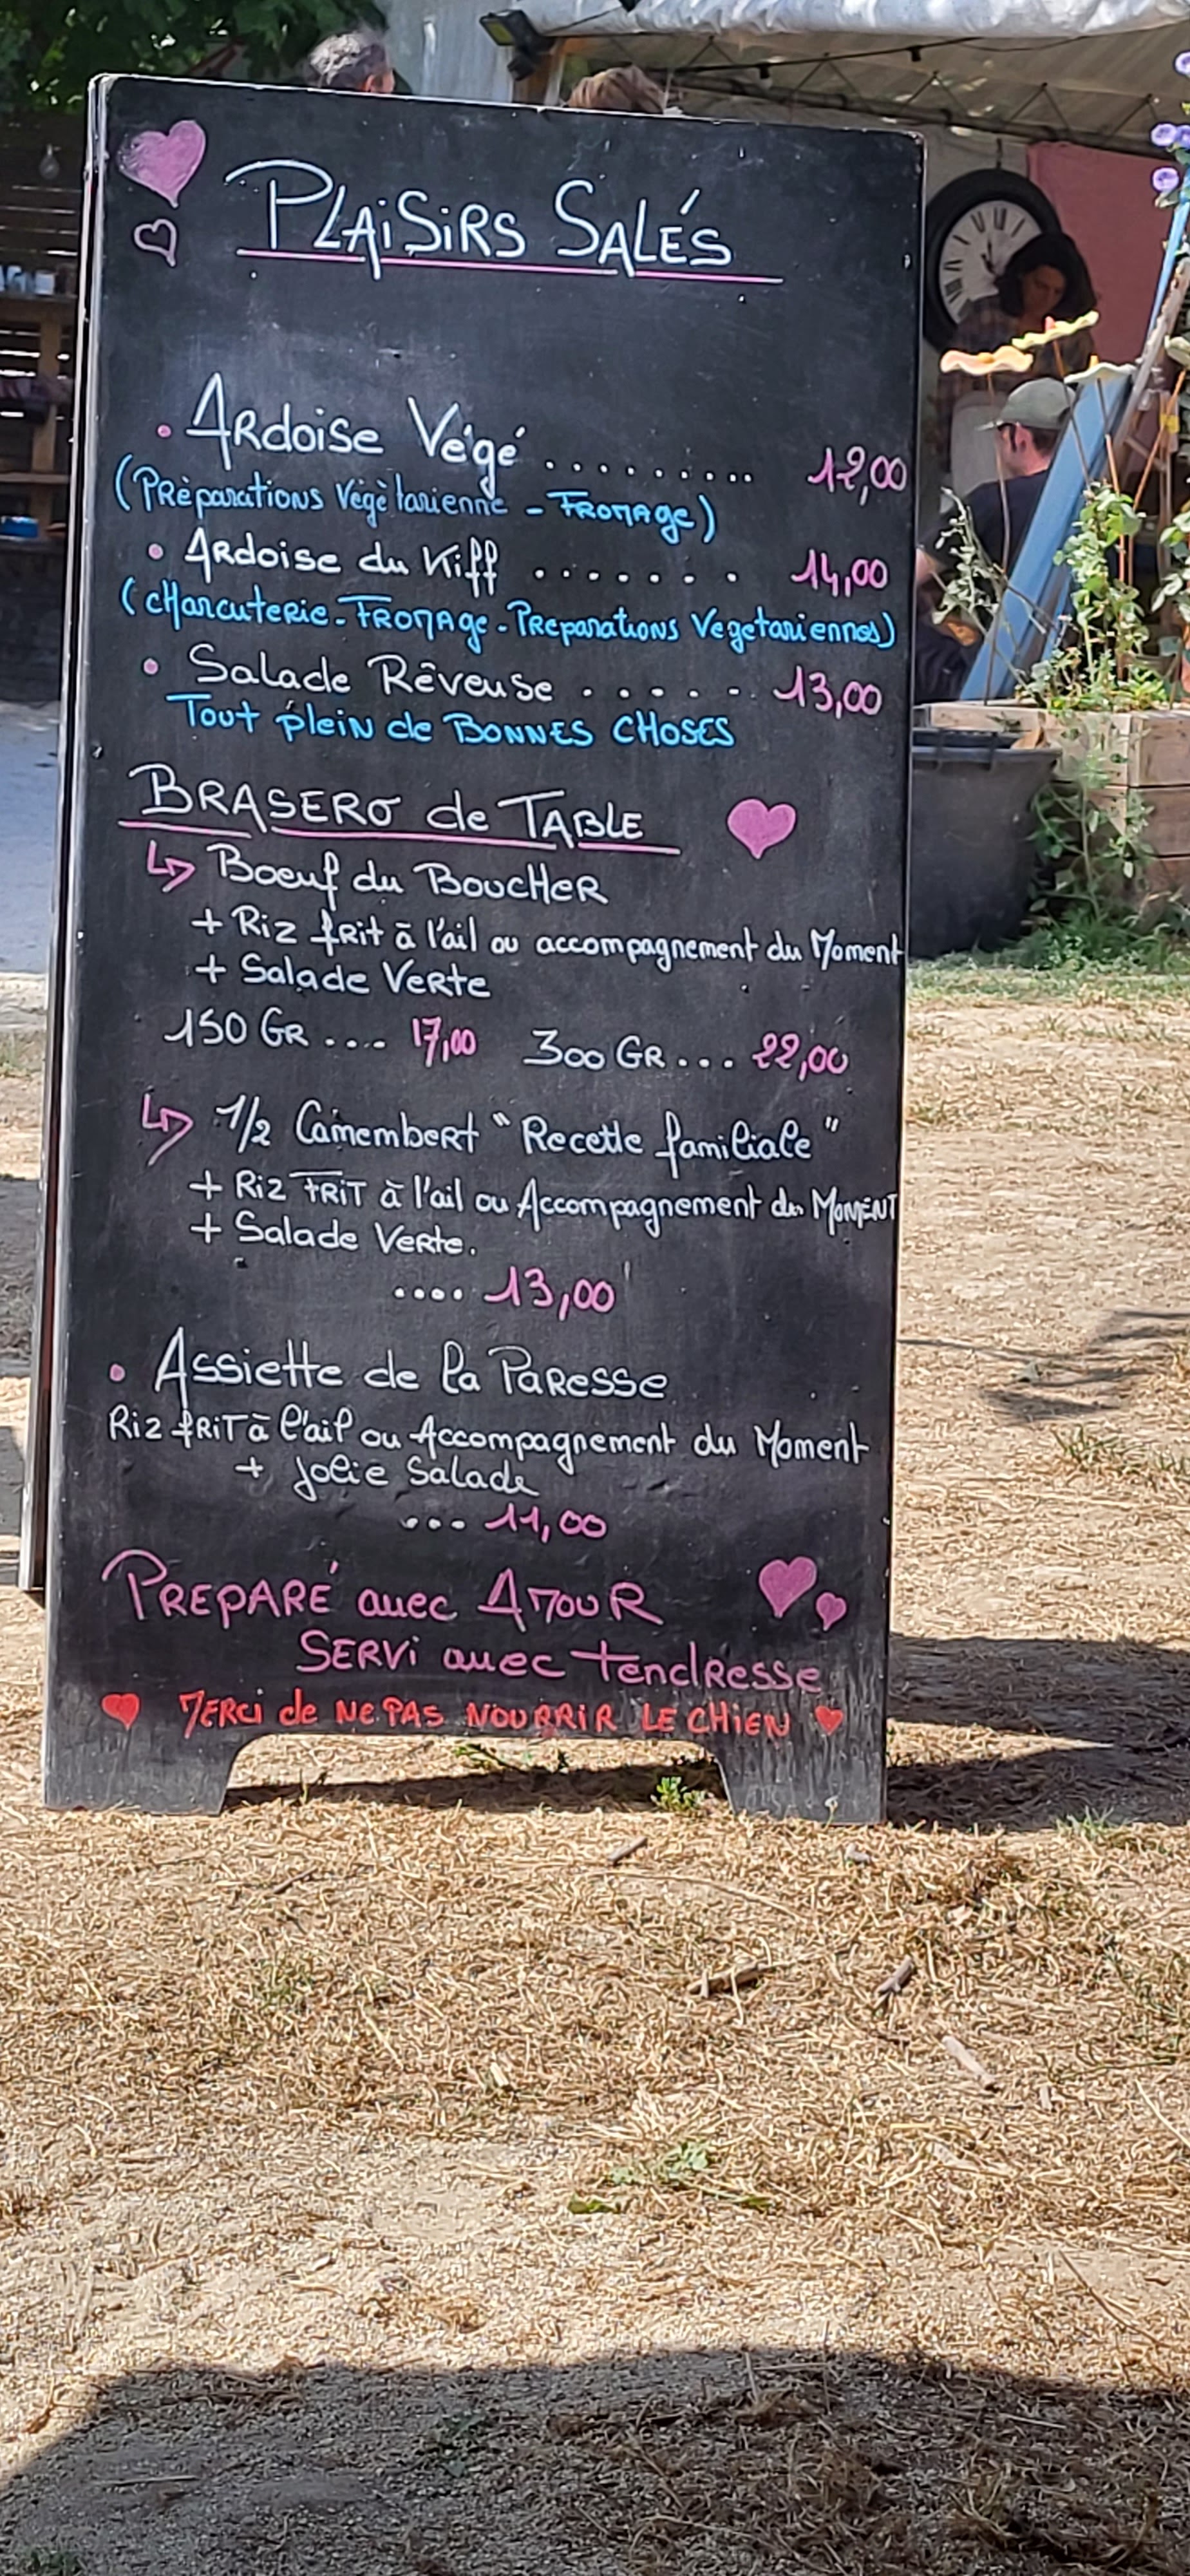 PLAISIRS SALÉS
• Ardoise Végé .......... 12,00
(Préparations Végètarienne - Fromage)
• Ardoise du Kiff ....... 14,00
(cHarcuterie - Fromage - Preparations Vegetariennes)
• Salade Rêveuse ...... 13,00
Tout plein de BONNES CHOSES
BRASERO de TABLE
↳ Boeuf du BoucHer
+ Riz frit à l'ail ou accompagnement du Moment
+ Salade Verte
150 GR .... 17,00 300 GR ... 22,00
↳ 1/2 Camembert "Recette familiale"
+ Riz FRiT à l'ail ou Accompagnement du MOMENT
+ Salade Verte.
.... 13,00
• Assiette de la Paresse
Riz fRiT à l'ail ou Accompagnement du Moment
+ jolie Salade
... 11,00
PREPARÉ avec AMOUR
SERVi avec tendResse
MERCi de NE PAS NOURRIR LE CHiEN